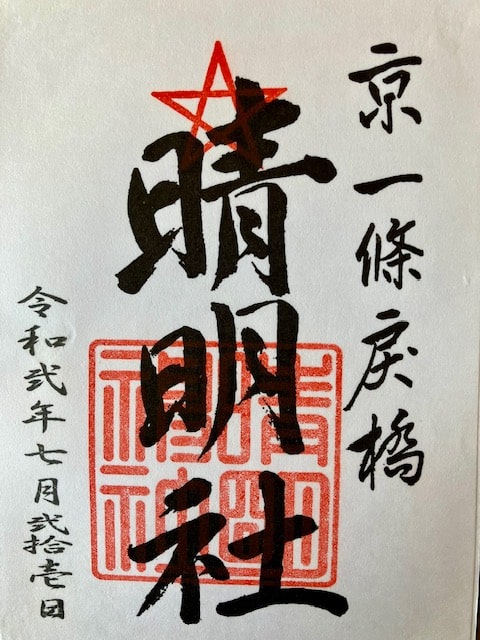 京一條戻橋
晴明社
令和弐年七月弐拾壱日